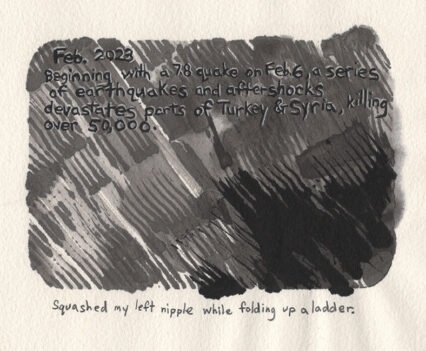 Feb. 2023
Beginning with a 7.8 quake on Feb. 6, a series
of earthquakes and aftershocks
devastates parts of Turkey & Syria, killing
over 50,000.
Squashed my left nipple while folding up a ladder.